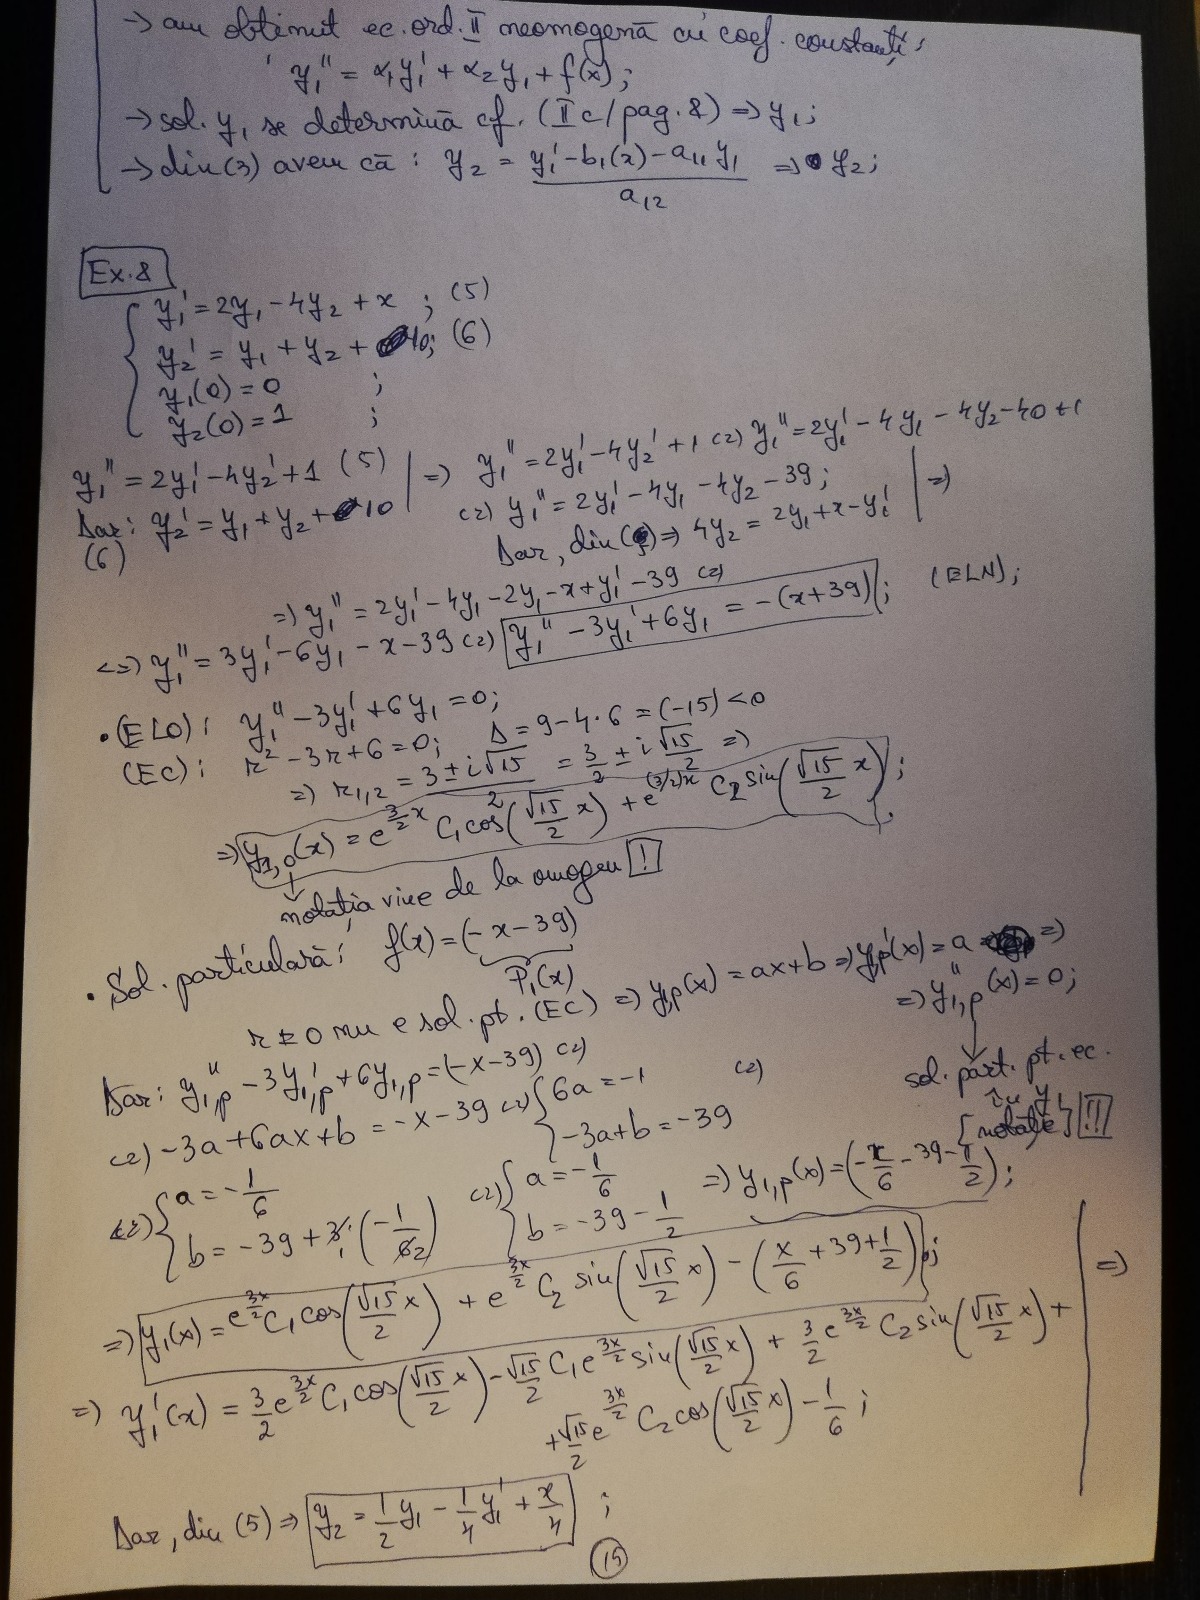 → am obținut ec. ord. II neomogenă cu coef. constanți;
y₁'' = α₁y₁' + α₂y₁ + f(x);
→ sol. y₁ se determină cf. (II c/pag. 8) => y₁;
→ din (3) avem că: y₂ = (y₁' - b₁(x) - a₁₁y₁)/a₁₂ => y₂;
Ex. 8
y₁' = 2y₁ - 4y₂ + x ; (5)
y₂' = y₁ + y₂ + 10; (6)
y₁(0) = 0 ;
y₂(0) = 1 ;
y₁'' = 2y₁' - 4y₂' + 1 (5) | => y₁'' = 2y₁' - 4y₂' + 1 (=) y₁'' = 2y₁' - 4y₁ - 4y₂ - 40 + 1
Dar: y₂' = y₁ + y₂ + 10 (=) y₁'' = 2y₁' - 4y₁ - 4y₂ - 39; | =>
(6) Dar, din (5) => 4y₂ = 2y₁ + x - y₁'
=> y₁'' = 2y₁' - 4y₁ - 2y₁ - x + y₁' - 39 (=)
<=> y₁'' = 3y₁' - 6y₁ - x - 39 (=) y₁'' - 3y₁' + 6y₁ = -(x+39) ; (ELN);
• (ELO): y₁'' - 3y₁' + 6y₁ = 0;
(EC): r² - 3r + 6 = 0; Δ = 9 - 4·6 = (-15) < 0
=> r₁,₂ = (3 ± i√15)/2 = 3/2 ± i √15/2 =>
=> y₁,₀(x) = e^(3/2 x) C₁cos(√15/2 x) + e^((3/2)x) C₂ sin(√15/2 x) ;
notația vine de la omogen !
• Sol. particulară: f(x) = (-x - 39)
P₁(x)
r = 0 nu e sol. pt. (EC) => y₁p(x) = ax + b => yp'(x) = a =>
=> y₁,p''(x) = 0;
sol. part. pt. ec.
în y₁
[notație] !!
Dar: y₁,p'' - 3y₁,p' + 6y₁,p = (-x - 39) (=)
(=) -3a + 6ax + b = -x - 39 (=) { 6a = -1 (=)
-3a + b = -39
(=) { a = -1/6 (=) { a = -1/6 => y₁,p(x) = (-x/6 - 39 - 1/2);
b = -39 + 3·(-1/6₂) b = -39 - 1/2
=> y₁(x) = e^(3x/2) C₁cos(√15/2 x) + e^(3x/2) C₂ sin(√15/2 x) - (x/6 + 39 + 1/2) ; | =>
=> y₁'(x) = 3/2 e^(3x/2) C₁cos(√15/2 x) - √15/2 C₁e^(3x/2) sin(√15/2 x) + 3/2 e^(3x/2) C₂ sin(√15/2 x) +
+ √15/2 e^(3x/2) C₂cos(√15/2 x) - 1/6 ;
Dar, din (5) => y₂ = 1/2 y₁ - 1/4 y₁' + x/4 ;
15